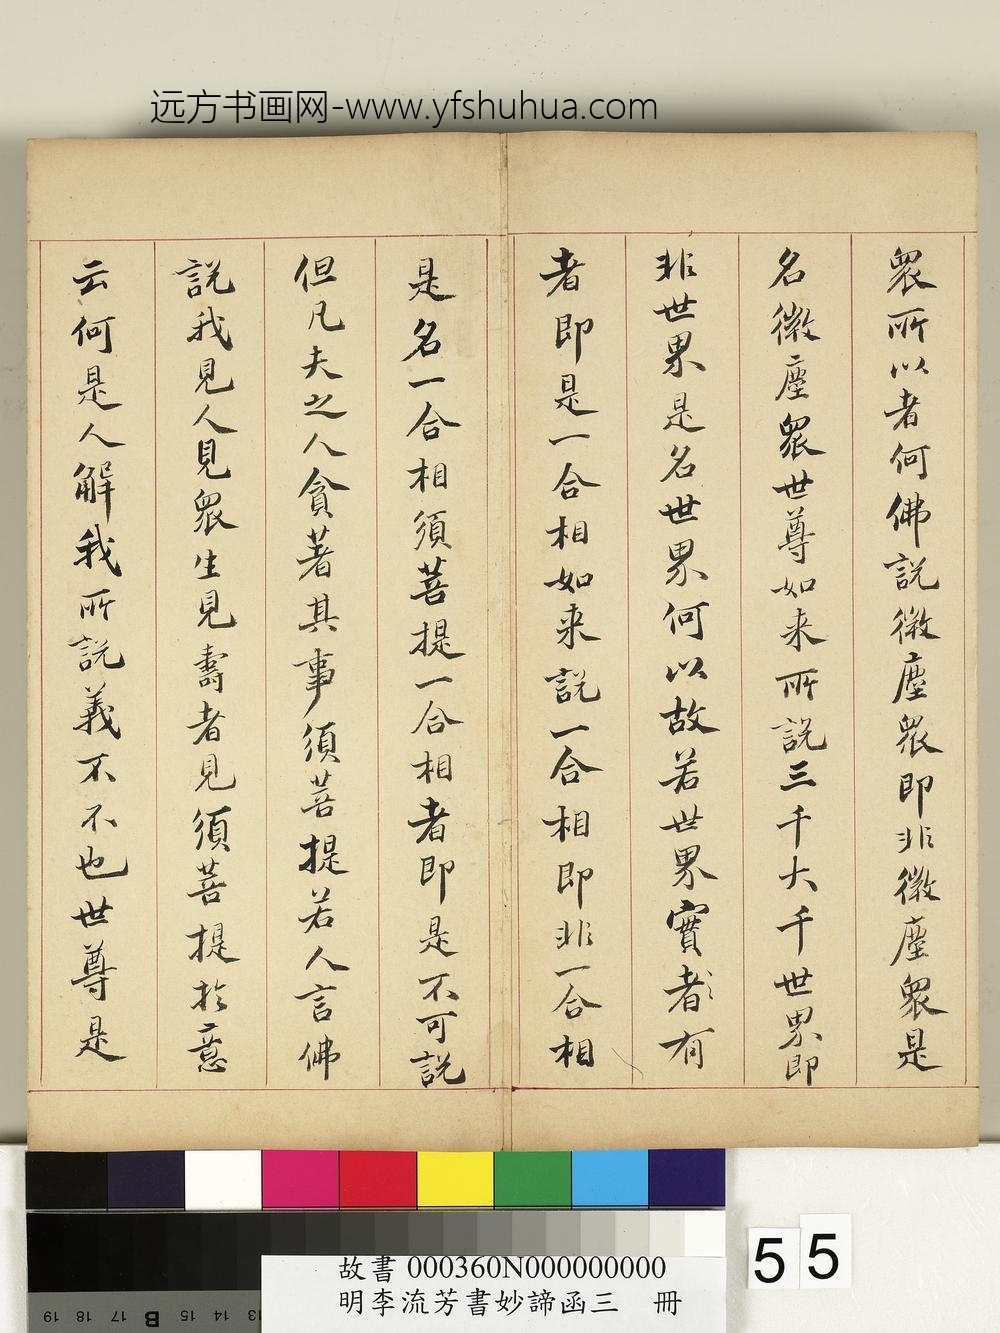 远方书画网-www.yfshuhua.com
眾所以者何佛說微塵眾即非微塵眾是
名微塵眾世尊如来所說三千大千世界即
非世界是名世界何以故若世界實者有
者即是一合相如来說一合相即非一合相
是名一合相須菩提一合相者即是不可說
但凡夫之人貪著其事須菩提若人言佛
說我見人見眾生見壽者見須菩提於意
云何是人解我所說義不不也世尊是
55
故書 000360N000000000
明李流芳書妙諦函三 冊
19 18 17 B 15 14 13